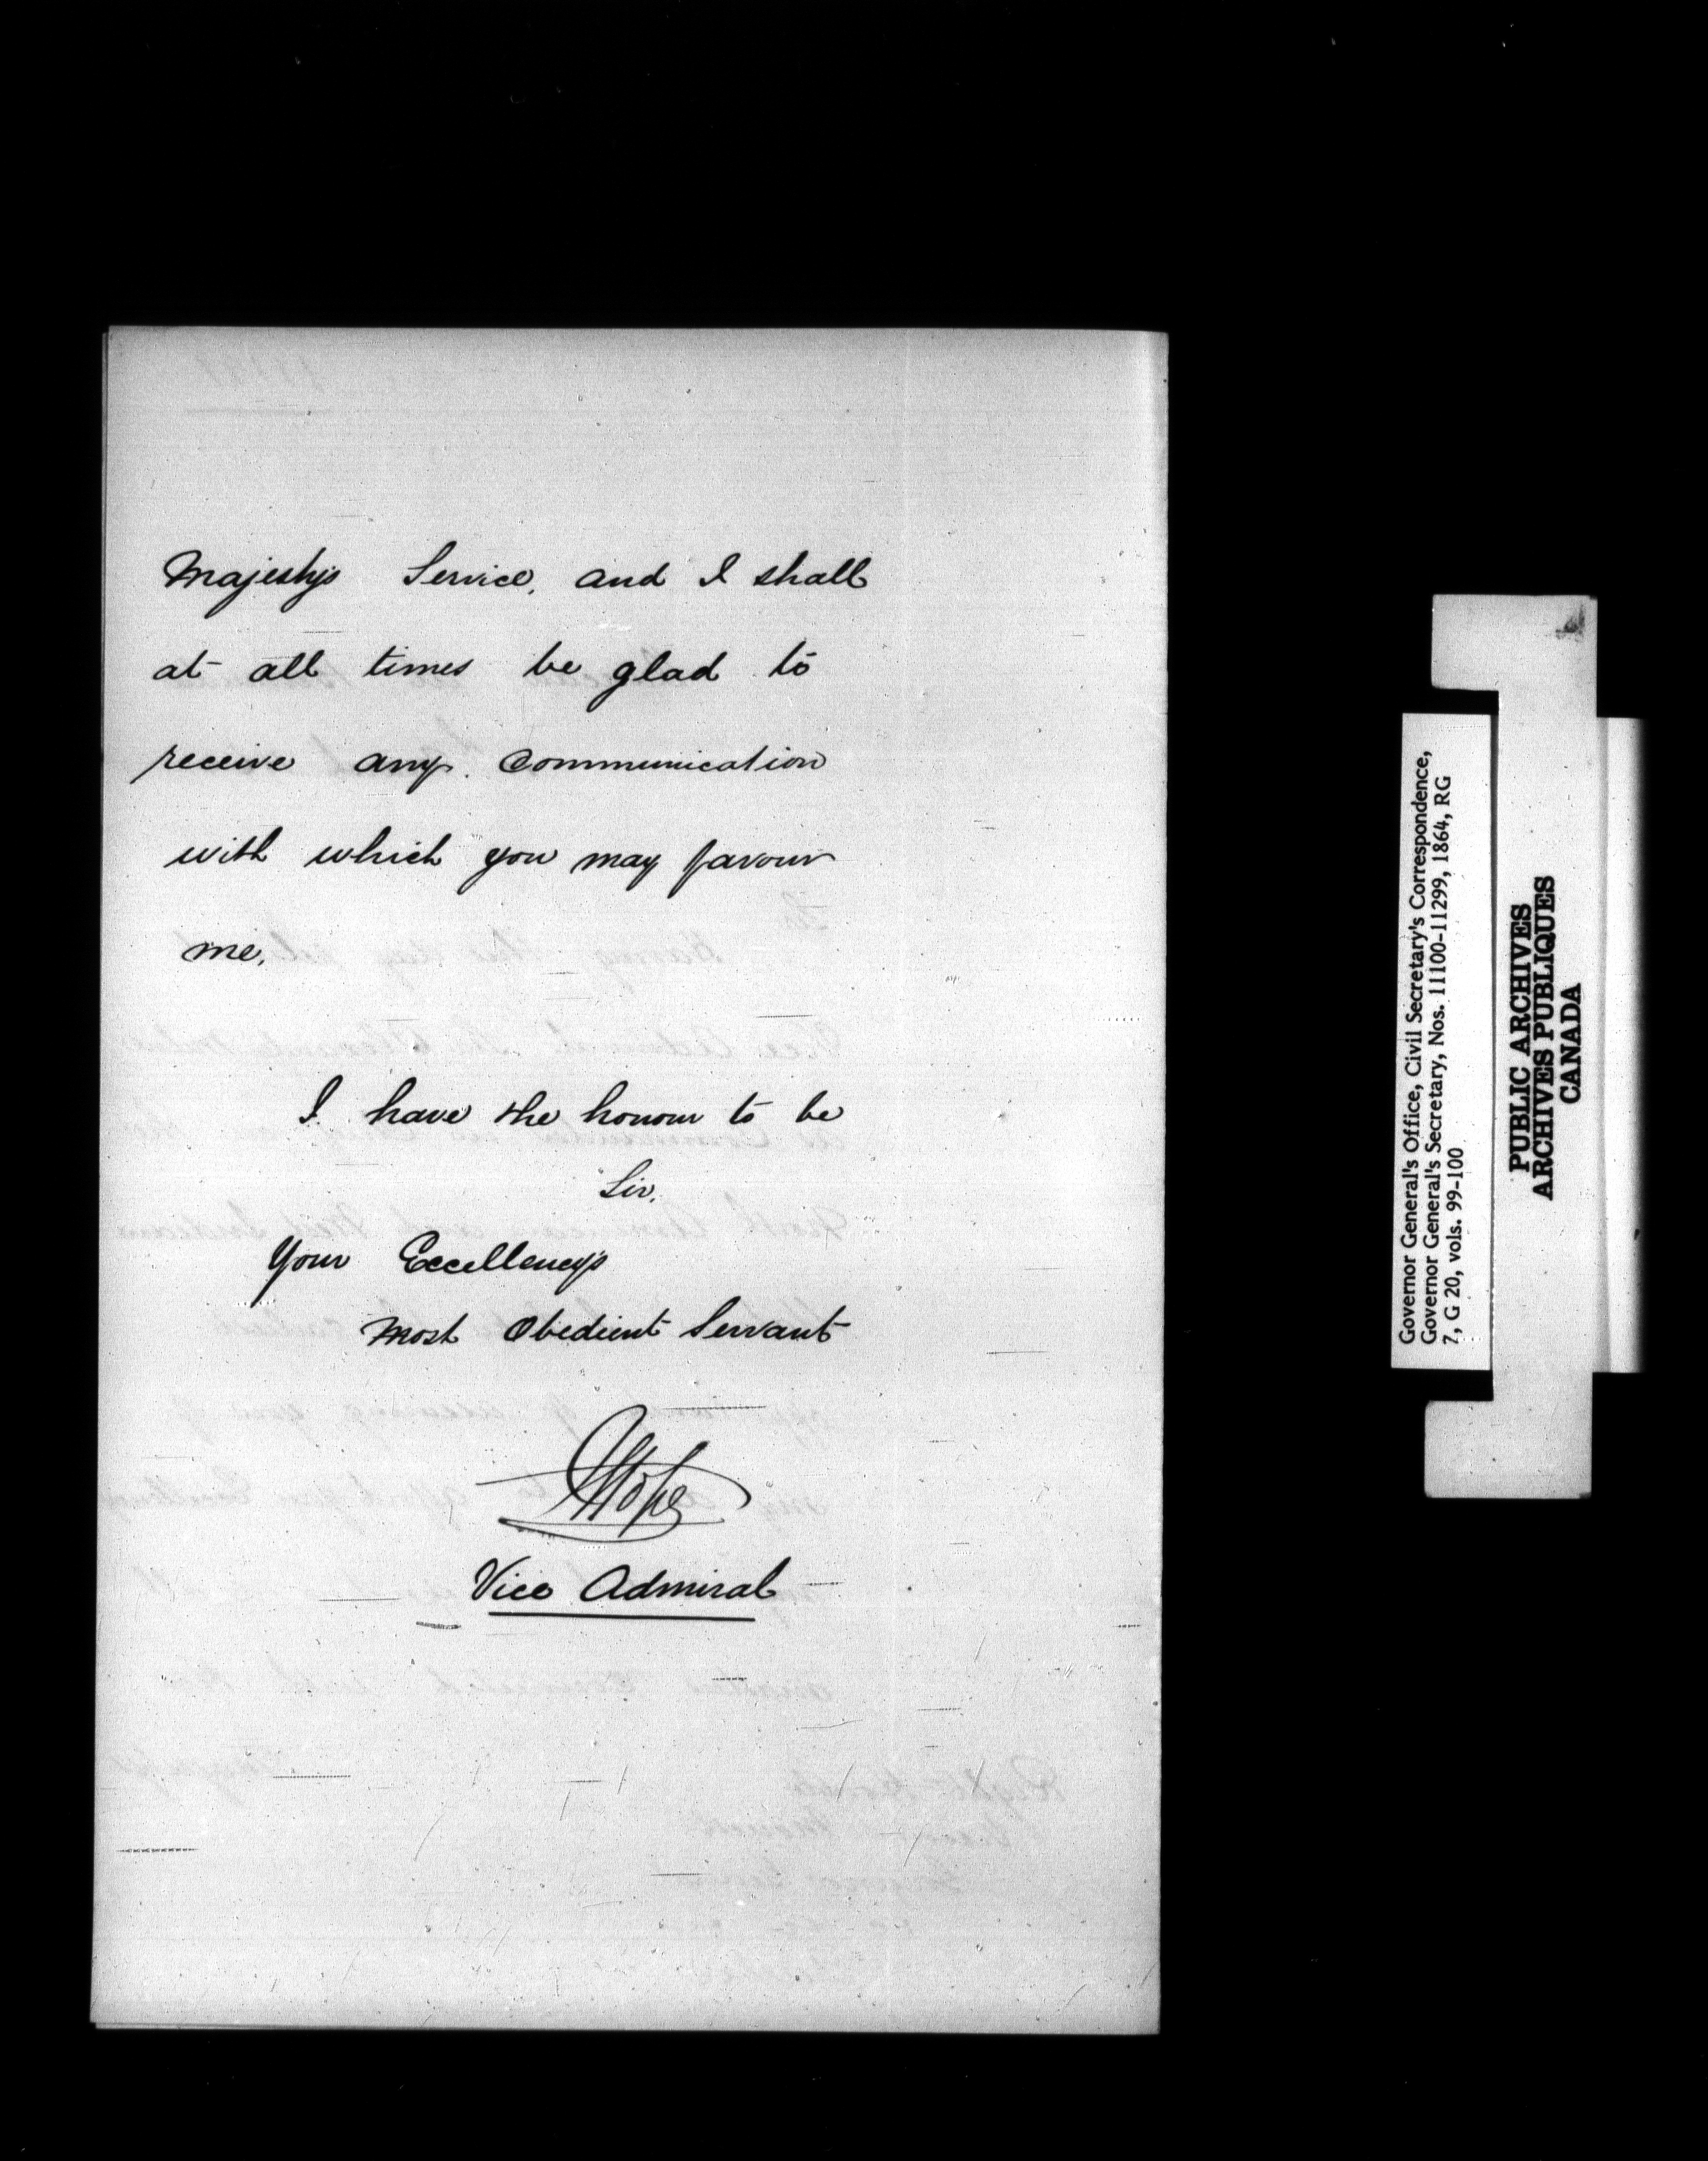 Majesty's Service, and I shall
at all times be glad to
receive any communication
with which you may favour
me.
I have the honour to be
Sir,
Your Excellency's
Most Obedient Servant
JHope
Vice Admiral
Governor General's Office, Civil Secretary's Correspondence,
Governor General's Secretary, Nos. 11100-11299, 1864, RG
7, G 20, vols. 99-100
PUBLIC ARCHIVES
ARCHIVES PUBLIQUES
CANADA